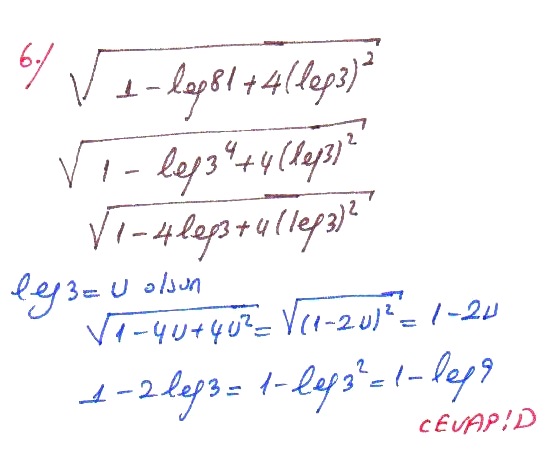 6./ √(1 - log81 + 4(log3)²)
√(1 - log3⁴ + 4(log3)²)
√(1 - 4log3 + 4(log3)²)
log3 = U olsun
√(1 - 4U + 4U²) = √((1 - 2U)²) = 1 - 2U
1 - 2log3 = 1 - log3² = 1 - log9
CEVAP!D